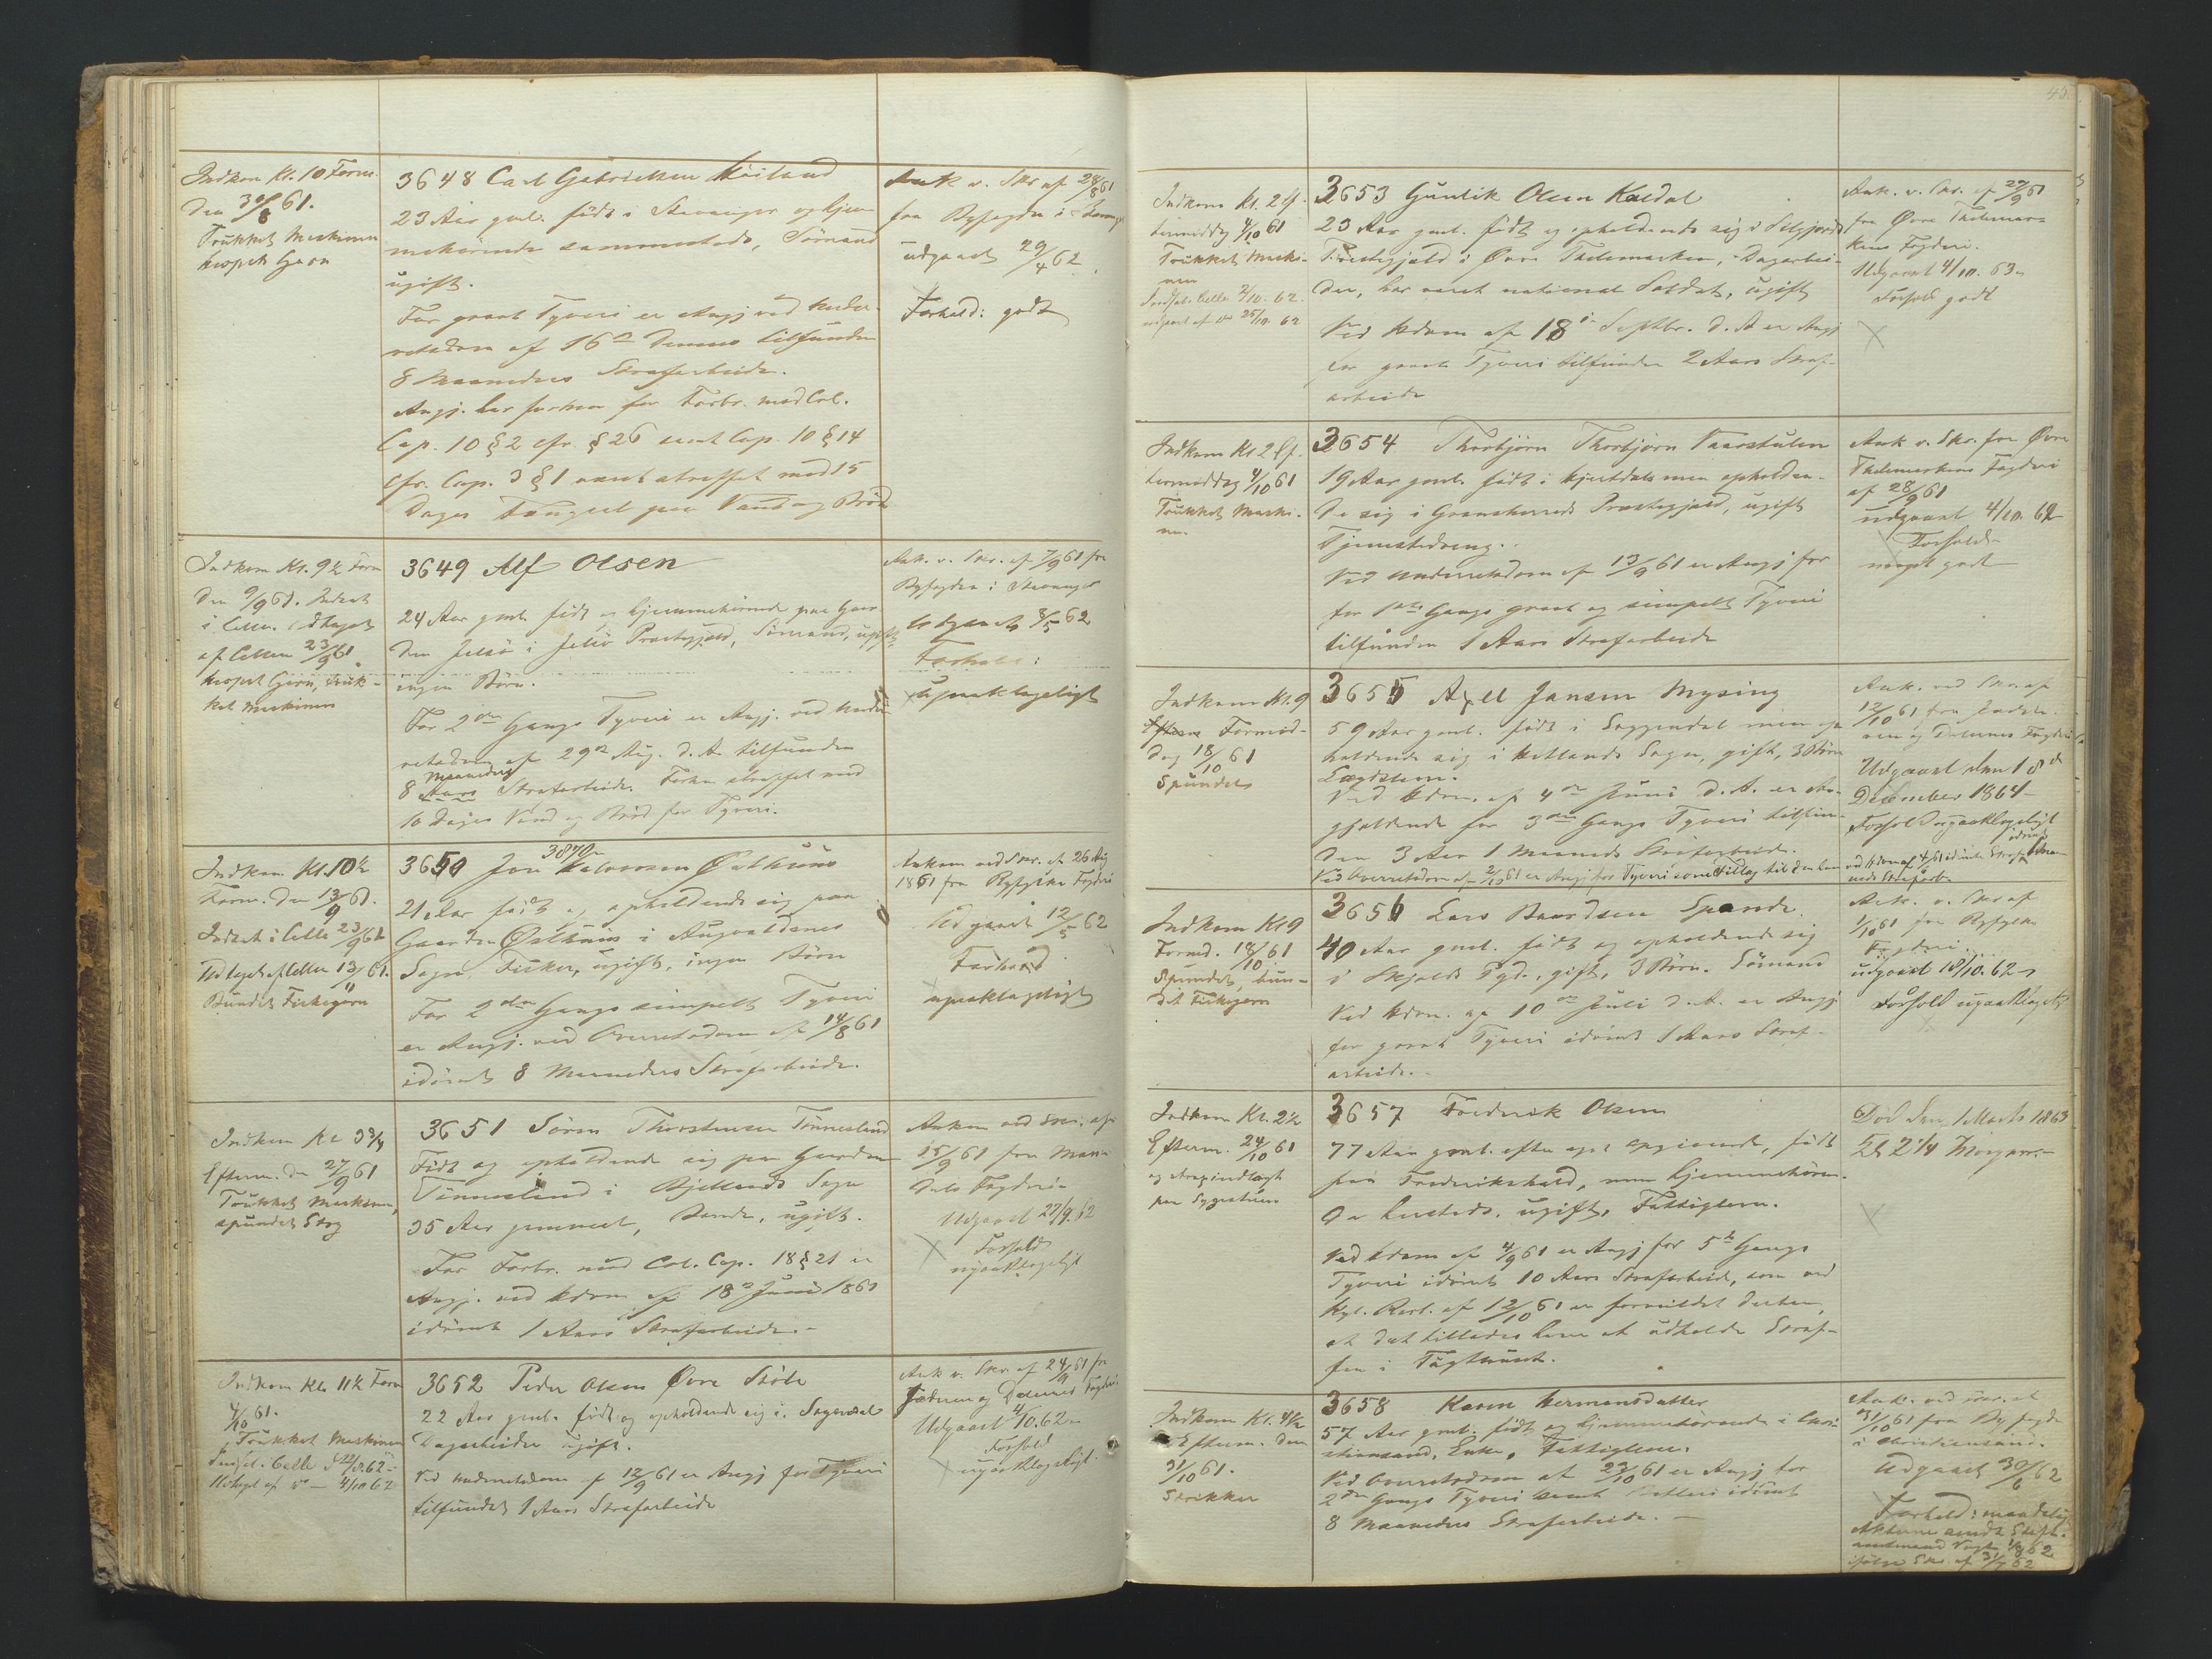 Indkom Kl. 10 Form.
Den 30/8 61.
Trukket Maskinen
hespet Garn
3648 Carl Gabrielsen
23 Aar gml. født i Stavanger og hjem-
mehørende sammesteds, Sömand
ugift.
For grovt Tyveri er Angj. ved Under-
retsdom af 16de Dennes tilfunden
8 Maaneders Strafarbeide.
Angj. har forhen for Forbr. mod Col.
Cap. 10 § 2 cfr. § 26 samt Cap. 10 § 14
cfr. Cap. 3 § 1 været straffet med 15
Dages Fængsel paa Vand og Bröd
Ank v. Skr af 28/8 61
fra Byfogden i
udgaaet 29/4 62
Forhold: godt
Indkom Kl. 9½ Form
Den 9/9 61. Indsat
i Celle. Udtaget
af Cellen 23/9 61
hespet Garn, truk-
ket Maskinen
3649 Alf Olsen
24 Aar gml. født og hjemmehörende paa Gaar
den Jelsö i Jelsö Præstegjæld, Sömand, ugift
ingen Börn.
For 2den Gangs Tyveri er Angj. ved Under
retsdom af 29de Aug. d. A. tilfunden
Maaneders
8 Aars Strafarbeide. Forhen straffet med
10 Dages Vand og Bröd for Tyveri.
Ank. v. Skr. af 7/9 61 fra
Byfogden i Stavanger
Udgaaet 8/5 62
Forhold:
upaaklageligt
Indkom Kl. 10½
Form. Den 13/9 61.
Indsat i Celle 23/9 61
Udtaget af Cellen 13/11 61.
Bundet Fiskegarn
3870
3650 Jon Halvorsen Östhuus
21 Aar født og opholdende sig paa
Gaarden Östhuus i Augvaldsnes
Sogn, Fisker, ugift, ingen Börn
For 2den Gangs simpelt Tyveri
er Angj. ved Overretsdom af 14/8 61
idömt 8 Maaneders Strafarbeide.
Ankom ved Skr. af 26 Aug
1861 fra Ryfylke Fogderi
Udgaaet 12/5 62
Forhold
upaaklageligt
Indkom Kl 3¾
Efterm. Den 27/9 61
Trukket Maskinen,
spundet Stry
3651 Sören Thorstensen Tönnesland
Født og opholdende sig paa Gaarden
Tönnesland i Bjellands Sogn
35 Aar gammel, ugift.
For Forbr. mod Col. Cap. 18 § 21 er
Angj. ved Hdom af 18de Juni 1861
idömt 1 Aars Strafarbeide.-
Ankom ved Skr. af
15/9 61 fra Man-
dals Fogderi
Udgaaet 27/9. 62
Forhold
upaaklageligt
Indkom Kl. 11½ Form
4/10 61.
Trukket Maskinen
Indsat. Celle d 22/8. 62 -
Udtaget af do — 4/10 62
3652 Peder Olsen Övre Stöle
22 Aar gml. født og opholdende sig i Sogndal
Dagarbeider ugift.
Ved Underretsdom af 12/9 61 er Angj for Tyveri
tilfundet 1 Aars Strafarbeide
Ank v. Skr. af 24/9 61 fra
Jæderen og Dalernes Fogderi.
Udgaaet 4/10. 62
Forhold
upaaklageligt.
43.
Indkom Kl. 2 Ef-
termiddag 4/10 61
Trukket Maski-
nen
Indsat. Celle 2/10. 62.
udtaget af do 25/10. 62
3653 Gunlik Olsen Kaadal
23 Aar gml. født og opholdende sig i Seljord
Præstegjæld i Övre Thelemarken, Dagarbei-
der, har været national Soldat, ugift
Ved Hdom af 18de Septbr. d. A er Angj
for grovt Tyveri tilfunden 2 Aars Straf-
arbeide
Ank. v. Skr. af 27/9 61
fra Övre Thelemar-
kens Fogderi.
Udgaaet 4/10. 63
Forhold godt
Indkom Kl 2 Ef-
termiddag 4/10 61
Trukket Maski-
nen.
3654 Thorbjörn Thorbjörn Vaarstulen
19 Aar gml. født i Hjertdal men opholden-
de sig i Gransherreds Præstegjæld, ugift
Tjenestedreng.
Ved Underretsdom af 13/9 61 er Angj for
for 1ste Gangs grovt og simpelt Tyveri
tilfunden 1 Aars Strafarbeide
Ank v. Skr. fra Övre
Thelemarkens Fogderi
af 28/9 61
udgaaet 4/10. 62
Forhold
meget godt
Indkom Kl. 9
Formid-
dag 18/10 61
Spundet
3655 Axel Jansen Mysing
59 Aar gml. født i Soggendal men op-
holdende sig i Hetlands Sogn, gift, 3 Börn
Lægdslem.
Ved Hdom. af 4de Juni d. A. er An-
gjældende for 3die Gangs Tyveri tilfun-
den 3 Aar 1 Maaneds Strafarbeide.
Ved Overretsdom af 2/10 61 er Angj for Tyveri som Tillæg til den ham ved Hdom af 4/6 61 idömte Straf idömt 1 Maa-
neds Strafarb.
Ank. ved Skr. af
12/10 61 fra Jæder-
en og Dalernes Fogderi
Udgaaet den 18de
December 1864
Forhold upaaklageligt
Indkom Kl 9
Formd. 18/10 61
Spundet, bun-
det Fiskegarn
3656 Lars Baardsen Spande
40 Aar gml. født og opholdende sig
i Skjolds Pgd., gift, 3 Börn. Sömand
Ved Hdom. af 10de Juli d. A. er Angj
for grovt Tyveri idömt 1 Aars Straf-
arbeide.
Ank. v. Skr af
1/10 61 fra Ryfylke
Fogderi.
udgaaet 18/10. 62
Forhold upaaklageligt
Indkom Kl. 2½
Efterm. 24/10 61
og strax indlagt
paa Sygestuen
3657 Frederik Olsen
77 Aar gml. efter eget Opgivende, født
paa Frederikshald, men hjemmehören-
de hersteds. ugift, Fattiglem.
Ved Hdom af 4/9 61 er Angj for 5te Gangs
Tyveri idömt 10 Aars Strafarbeide, som ved
Kgl. Resl. af 12/10 61 er formildet derhen,
at det tillades ham at udholde Straf-
fen i Tugthuset.
Död den 1 Marts 1863
Kl 2¼ Morgen.
Indkom Kl. 4½
Efterm. den
31/10 61.
Strikker
3658 Karen Hermansdatter
57 Aar gml. født og hjemmehörende i Chri-
stiansand, Enke, Fattiglem.
Ved Overretsdom af 23/10 61 er Angj for
2den Gangs Tyveri samt Betleri idömt
8 Maaneders Strafarbeide. —
Ank. ved Skr. af
31/10 61 fra Byfogden
i Christiansand.
Udgaaet 30/6 62
Forhold: maadeligt
Akterne sendt Stift-
amtmand Vogt 1/8 62
ifølge Skr. af 31/7 62